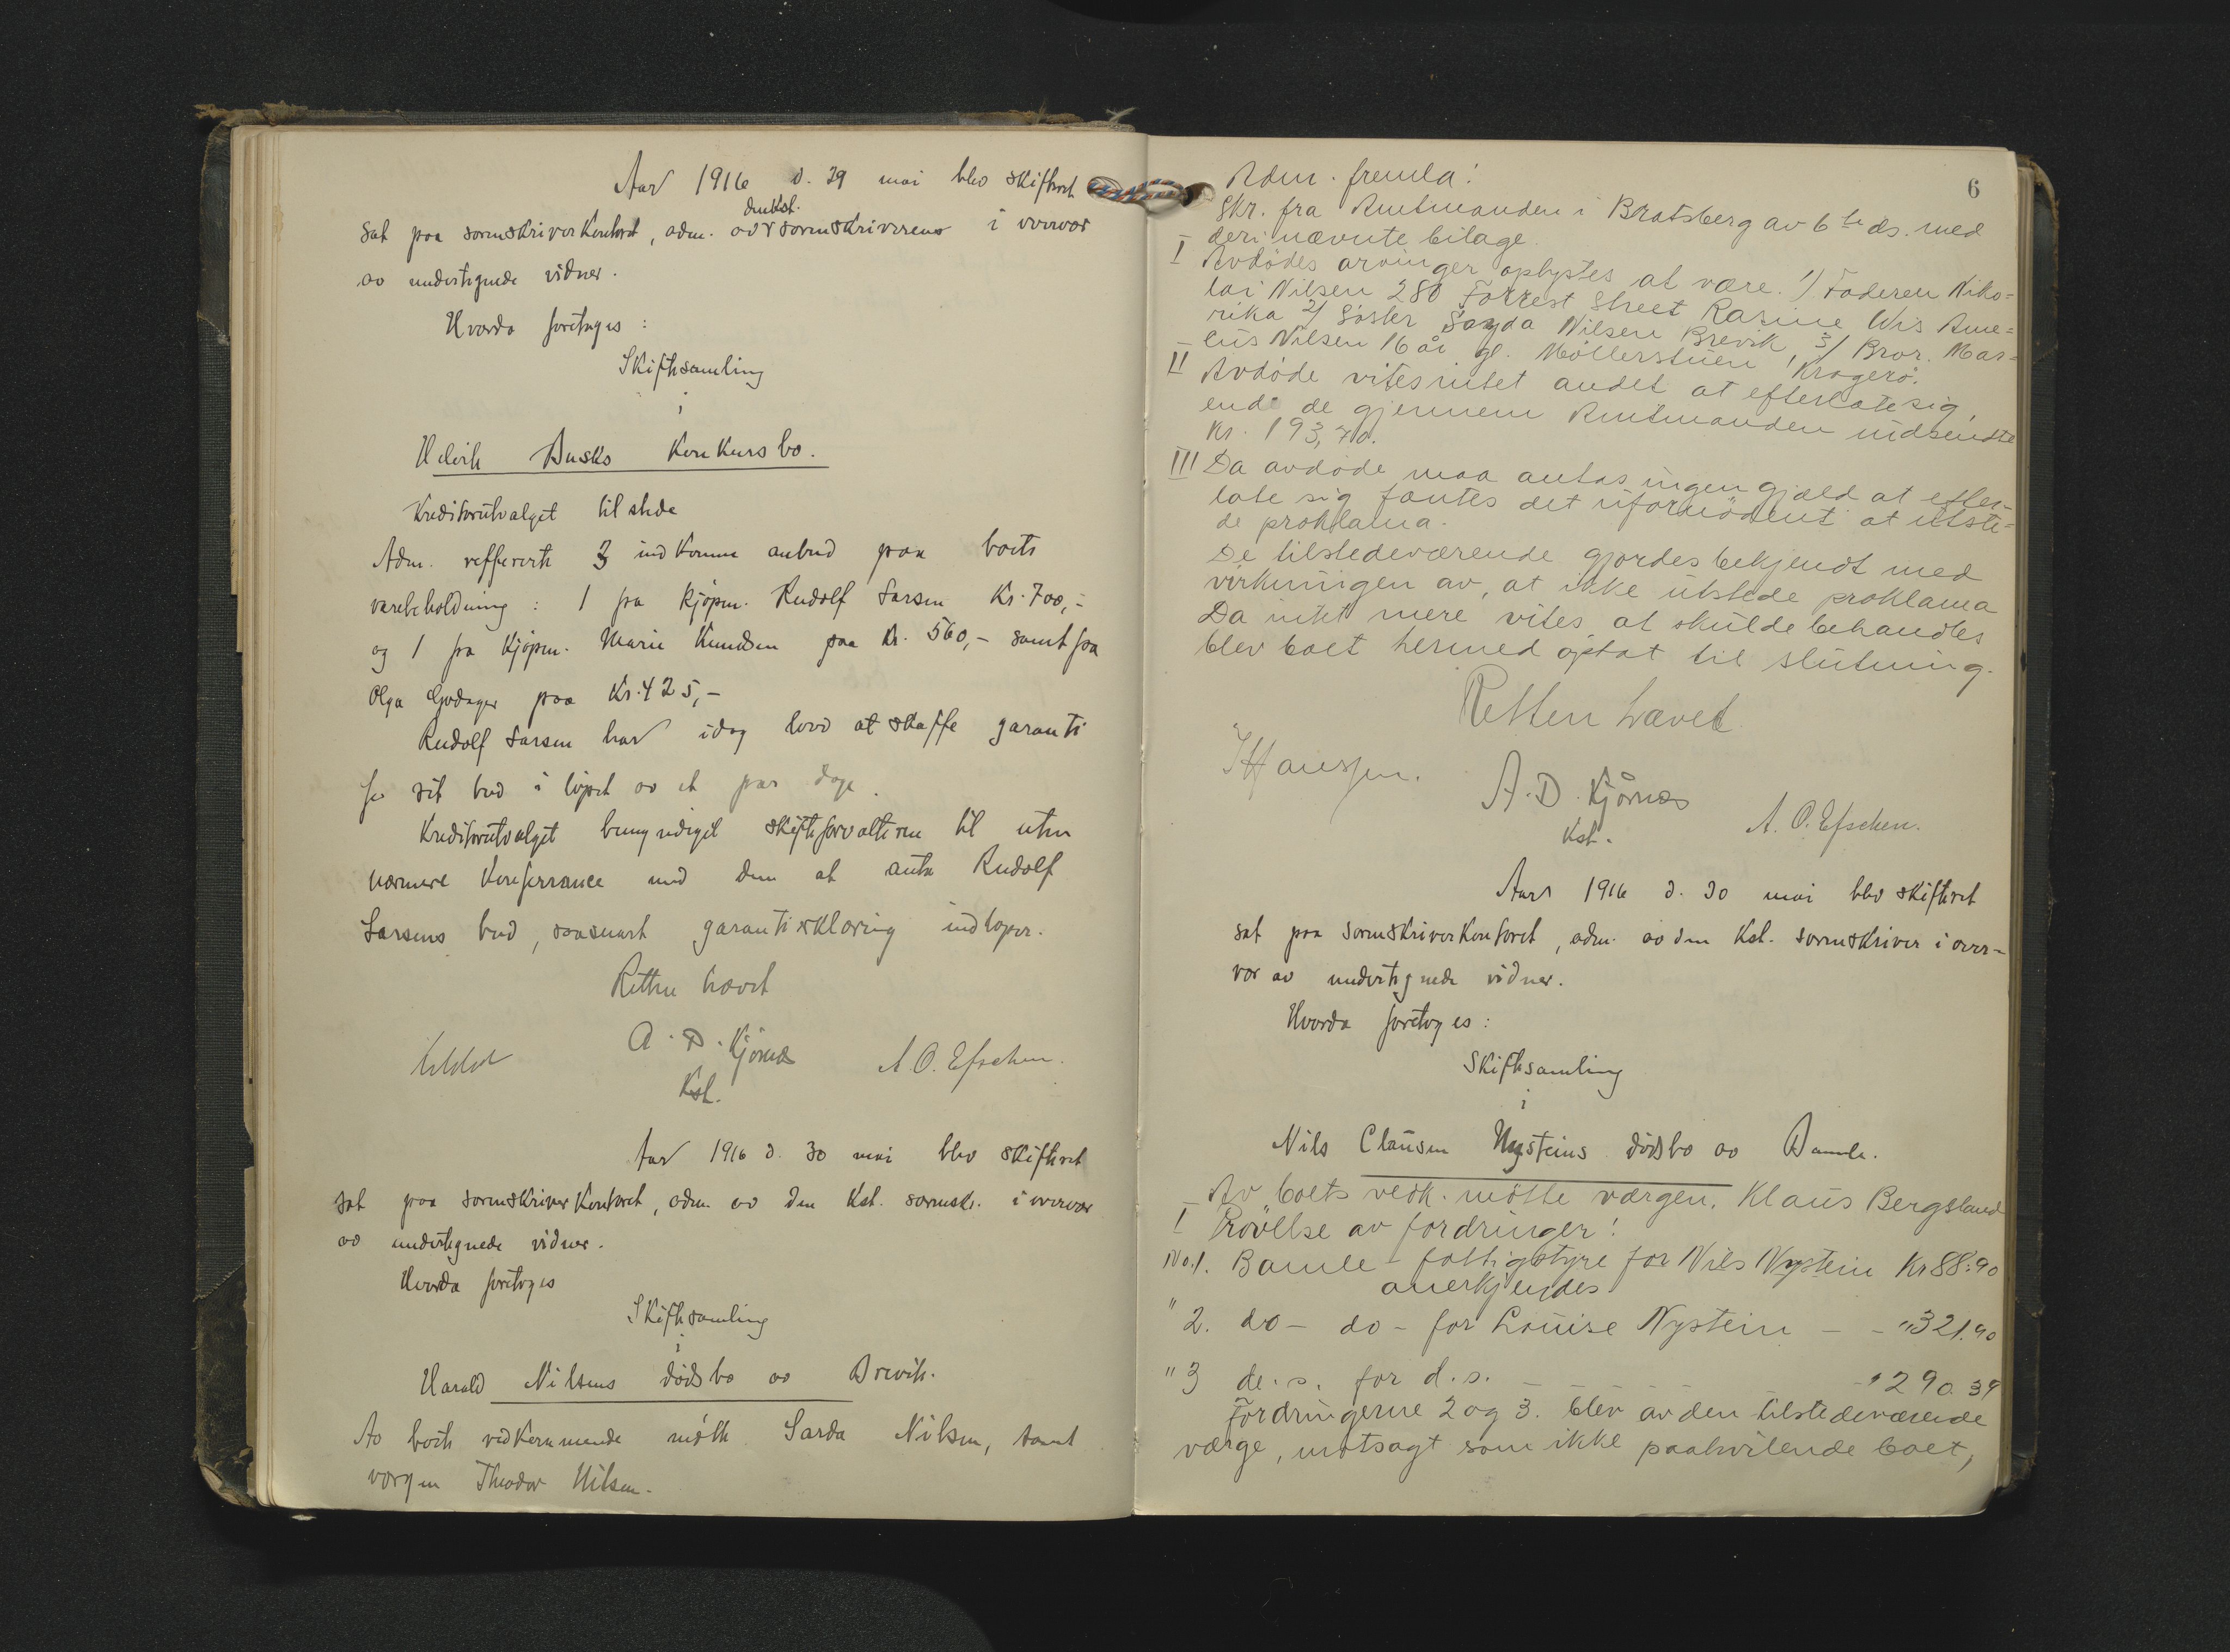 Aar 1916 d. 29 mai blev skifteret
den kst.
sat paa sorenskriverkontoret, adm. av sorenskriveren i overvær
av undertegnede vidner.
Hvorda foretoges:
Skiftesamling
i
Busks Konkursbo.
Kreditorutvalget tilstede
Adm. refferierte 3 indkomne anbud paa boets
varebeholdning: 1 fra kjøpm. Rudolf Larsen Kr. 700,-
og 1 fra Kjøpm. Marie Knudsen paa Kr. 560,- samt fra
Olga Godager paa Kr. 425,-
Rudolf Larsen har idag lovd at skaffe garanti
for sit bud i løpet av et par dage.
Kreditorutvalget bemyndiget skifteforvalteren til uten
nærmere Konferrance med dem at anta Rudolf
Larsens bud, saasnart garantierklæring indløper.
Retten hævet
A. D. Kjørnæs A. O. Efschen.
Kst.
Aar 1916 d. 30 mai blev skifteret
sat paa sorenskriverkontoret, adm. av den Kst. sorenskr. i overvær
av undertegnede vidner.
Hvorda foretoges
Skiftesamling
i
Harald Nilsens dødsbo av Brevik.
Av boets vedkommende møtte Sarda Nilsen, samt
vergen Theodor Nilsen.
6
Adm. fremla:
Skr. fra Amtmanden i Bratsberg av 6te ds. med
deri nævnte bilage.
I Avdødes arvinger oplystes at være. 1/ Faderen Niko=
lai Nilsen 280 Forrest Street Rasine Wis Ame=
rika 2/ Søster Sarda Nilsen Brevik, 3/ Bror. Mar=
eus Nilsen 16 år gl. Møllerstuen, Kragerø.
II Avdøde vites intet andet at efterlate sig,
end de gjennem Amtmanden indsendte
Kr. 193,70.
III Da avdøde maa antas ingen gjæld at efter-
late sig fantes det ufornødent at utste=
de proklama.
De tilstedeværende gjordes bekjendt med
virkningen av, at ikke utstede proklama
Da intet mere vites at skulde behandles
blev boet hermed optat til slutning.
Retten hævet
Hanssen. A. D. Kjørnæs A. O. Efschen.
Kst.
Aar 1916 d. 30 mai blev skifteret
sat paa sorenskriverkontoret, adm. av den Kst. sorenskriver i over-
vær av undertegnede vidner.
Hvorda foretoges:
Skiftesamling
i
Nils Clausen Nysteins dødsbo av Bamle.
Av boets vedk. møtte værgen, Klaus Bergsland
I Prøvelse av fordringer:
No. 1. Bamle fattigstyre for Nils Nystein Kr 88.90
anerkjendes
" 2. do - do - for Louise Nystein - - " 321.90
" 3 de. s. for d. s. - - " 290.39
Fordringerne 2 og 3. blev av den tilstedeværende
værge, motsagt som ikke paahvilende boet,